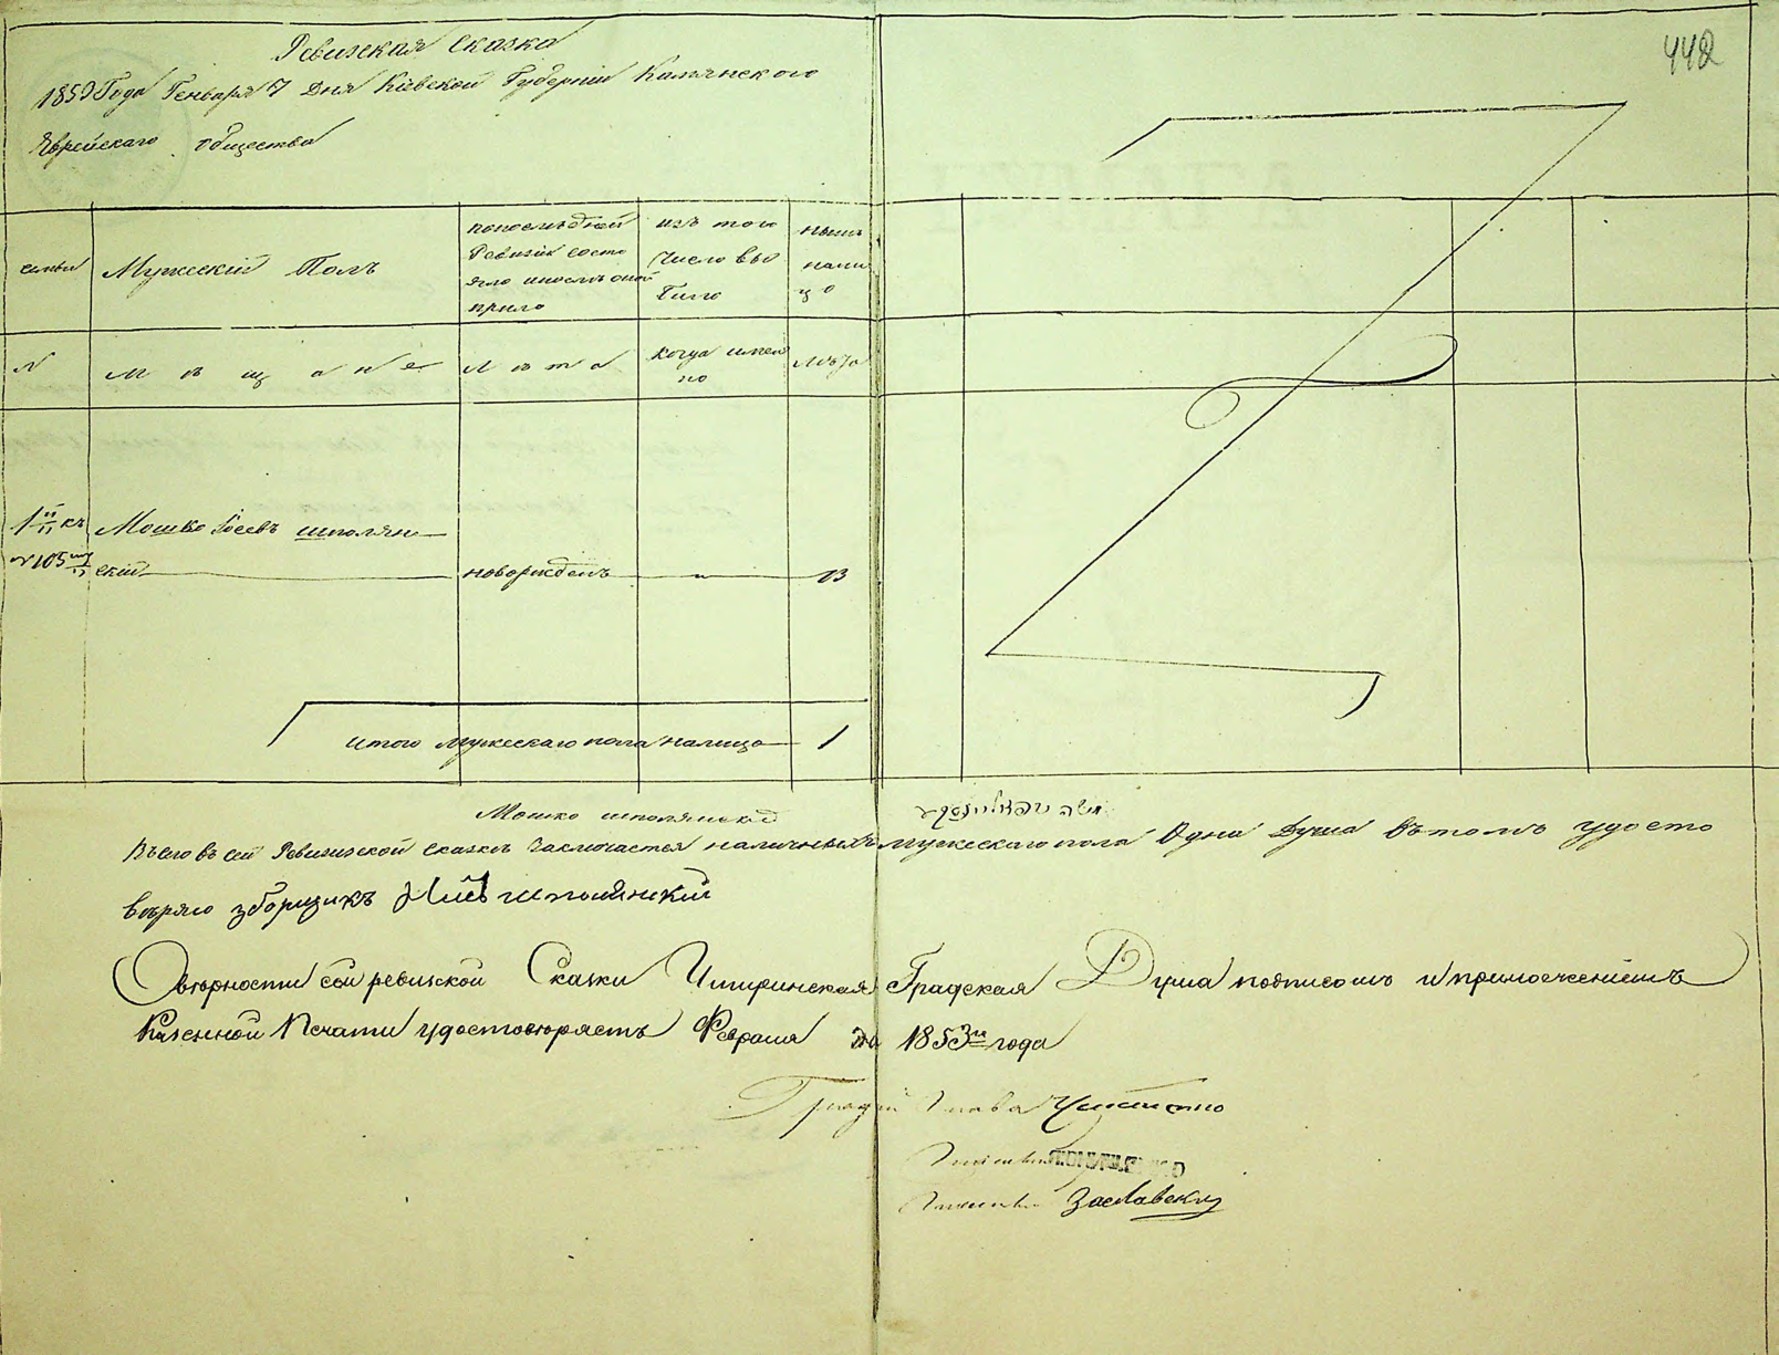 442
Ревизская Сказка
1853 Года Генваря 7 Дня Кіевской Губерніи Камянского
Еврейскаго общества
семьи
Мужескій Полъ
попослѣдней Ревизіи состояло ипослѣ оной прило
изъ того Число выбыло
нынѣ налицо
№
Мѣщане
Лѣта
когда именно
Лѣта
1 къ
№ 105
Мошко Іосевъ шполян-
скій
новорожденъ
"
13
итого мужескаго пола налицо 1
Мошко шполянскій
משה שפאליאנסקי
Всего въ сей Ревизской сказкѣ заключается наличныхъ мужескаго пола Одна Душа Въ томъ удосто
вѣряю зборщикъ шполянскій
Овѣрности сей ревизской Сказки Чигиринская Градская Дума подписомъ и приложеніемъ
Казенной Печати удостовѣряетъ Февраля дня 1853го года
Градскій Глава
Заславскій